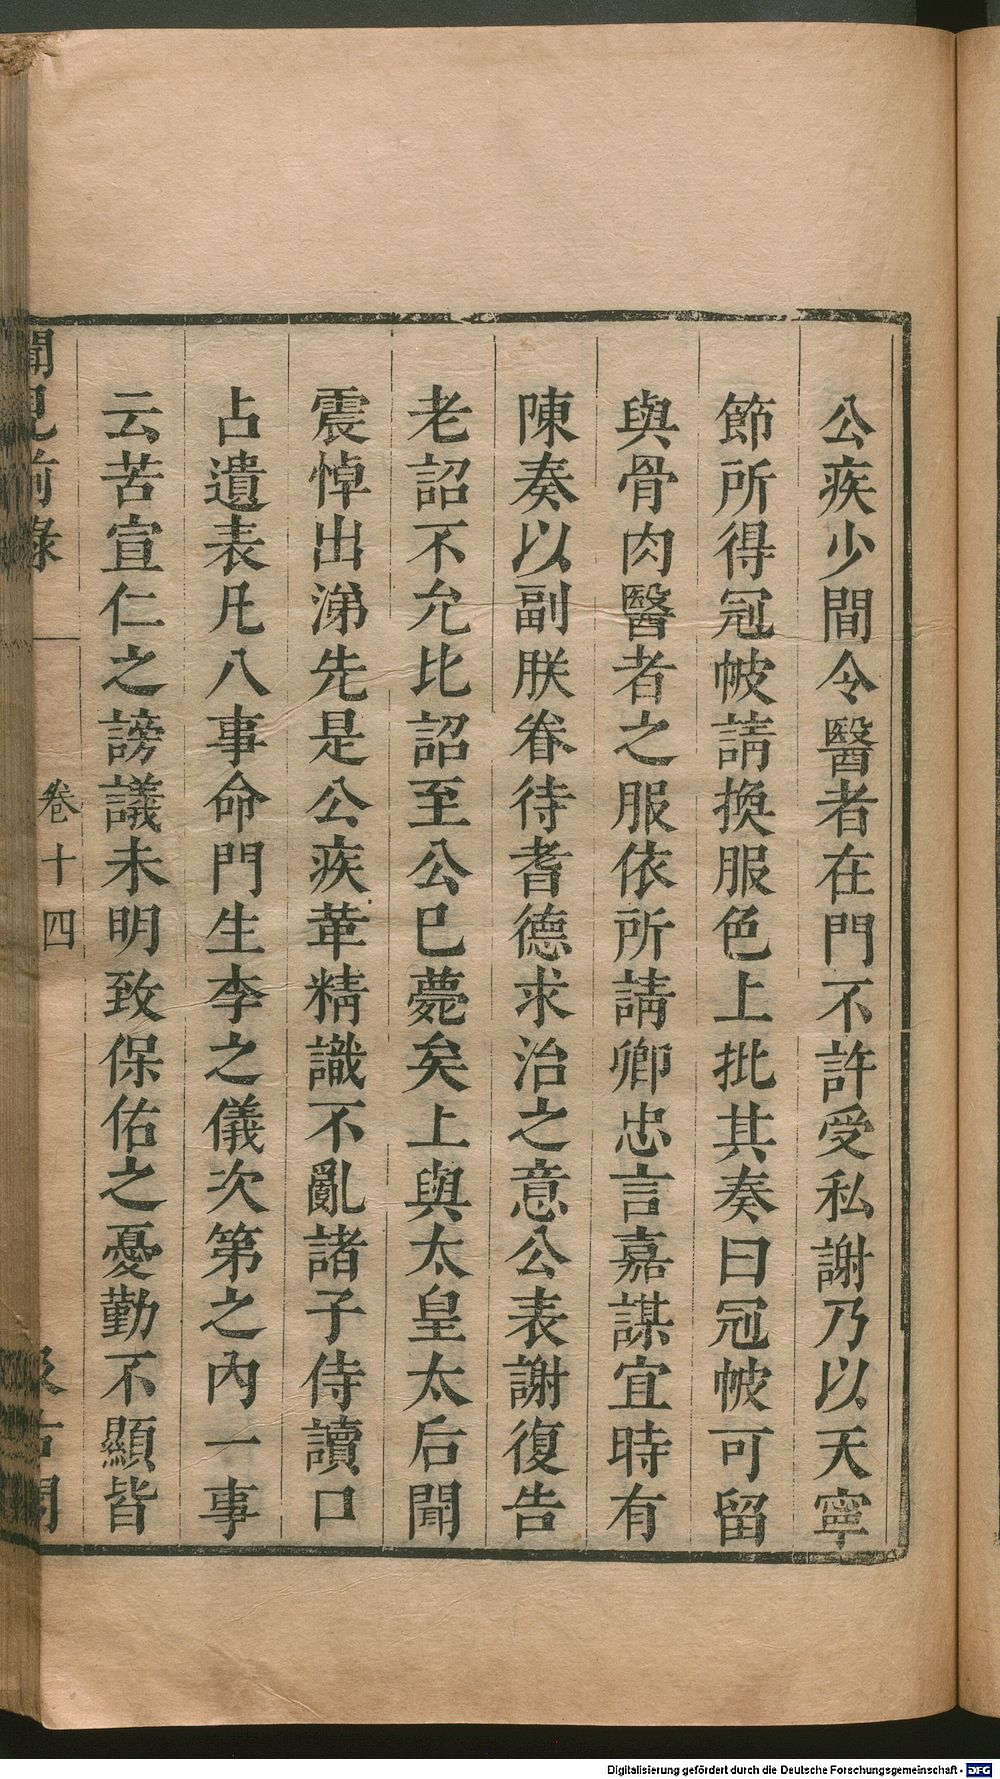 公疾少間令醫者在門不許受私謝乃以天寧
節所得冠帔請換服色上批其奏曰冠帔可留
與骨肉醫者之服依所請卿忠言嘉謀宜時有
陳奏以副朕眷待耆德求治之意公表謝復告
老詔不允比詔至公巳薨矣上與太皇太后聞
震悼出涕先是公疾革精識不亂諸子侍讀口
占遺表凡八事命門生李之儀次第之內一事
云苦宣仁之謗議未明致保佑之憂勤不顯皆
聞見前錄 卷十四 汲古閣
Digitalisierung gefördert durch die Deutsche Forschungsgemeinschaft - DFG